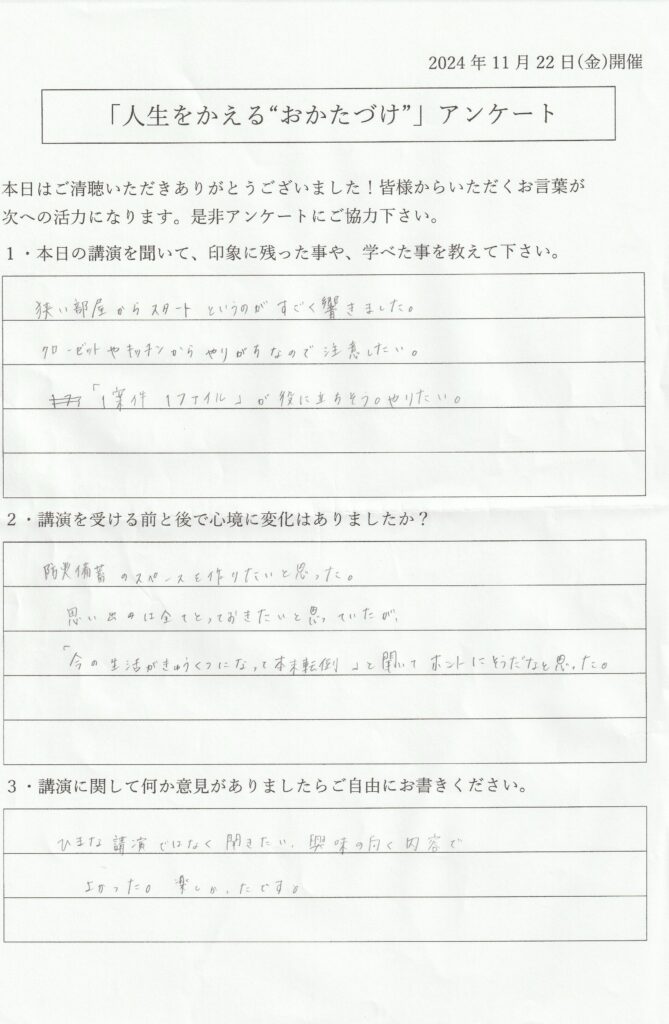 2024年11月22日(金)開催
「人生をかえる“おかたづけ”」アンケート
本日はご清聴いただきありがとうございました！皆様からいただくお言葉が
次への活力になります。是非アンケートにご協力下さい。
１・本日の講演を聞いて、印象に残った事や、学べた事を教えて下さい。
狭い部屋からスタートというのがすごく響きました。
クローゼットやキッチンからやりがちなので注意したい。
「1案件 1ファイル」が役に立ちそう。やりたい。
２・講演を受ける前と後で心境に変化はありましたか？
防災備蓄のスペースを作りたいと思った。
思い出の は全てとっておきたいと思っていたが、
「今の生活がきゅうくつになって本末転倒」と聞いてホントにそうだなと思った。
３・講演に関して何か意見がありましたらご自由にお書きください。
ひまな講演ではなく聞きたい、興味の向く内容で
よかった。楽しかったです。